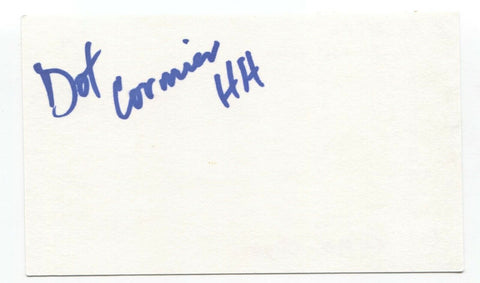 Dot Cormier HH